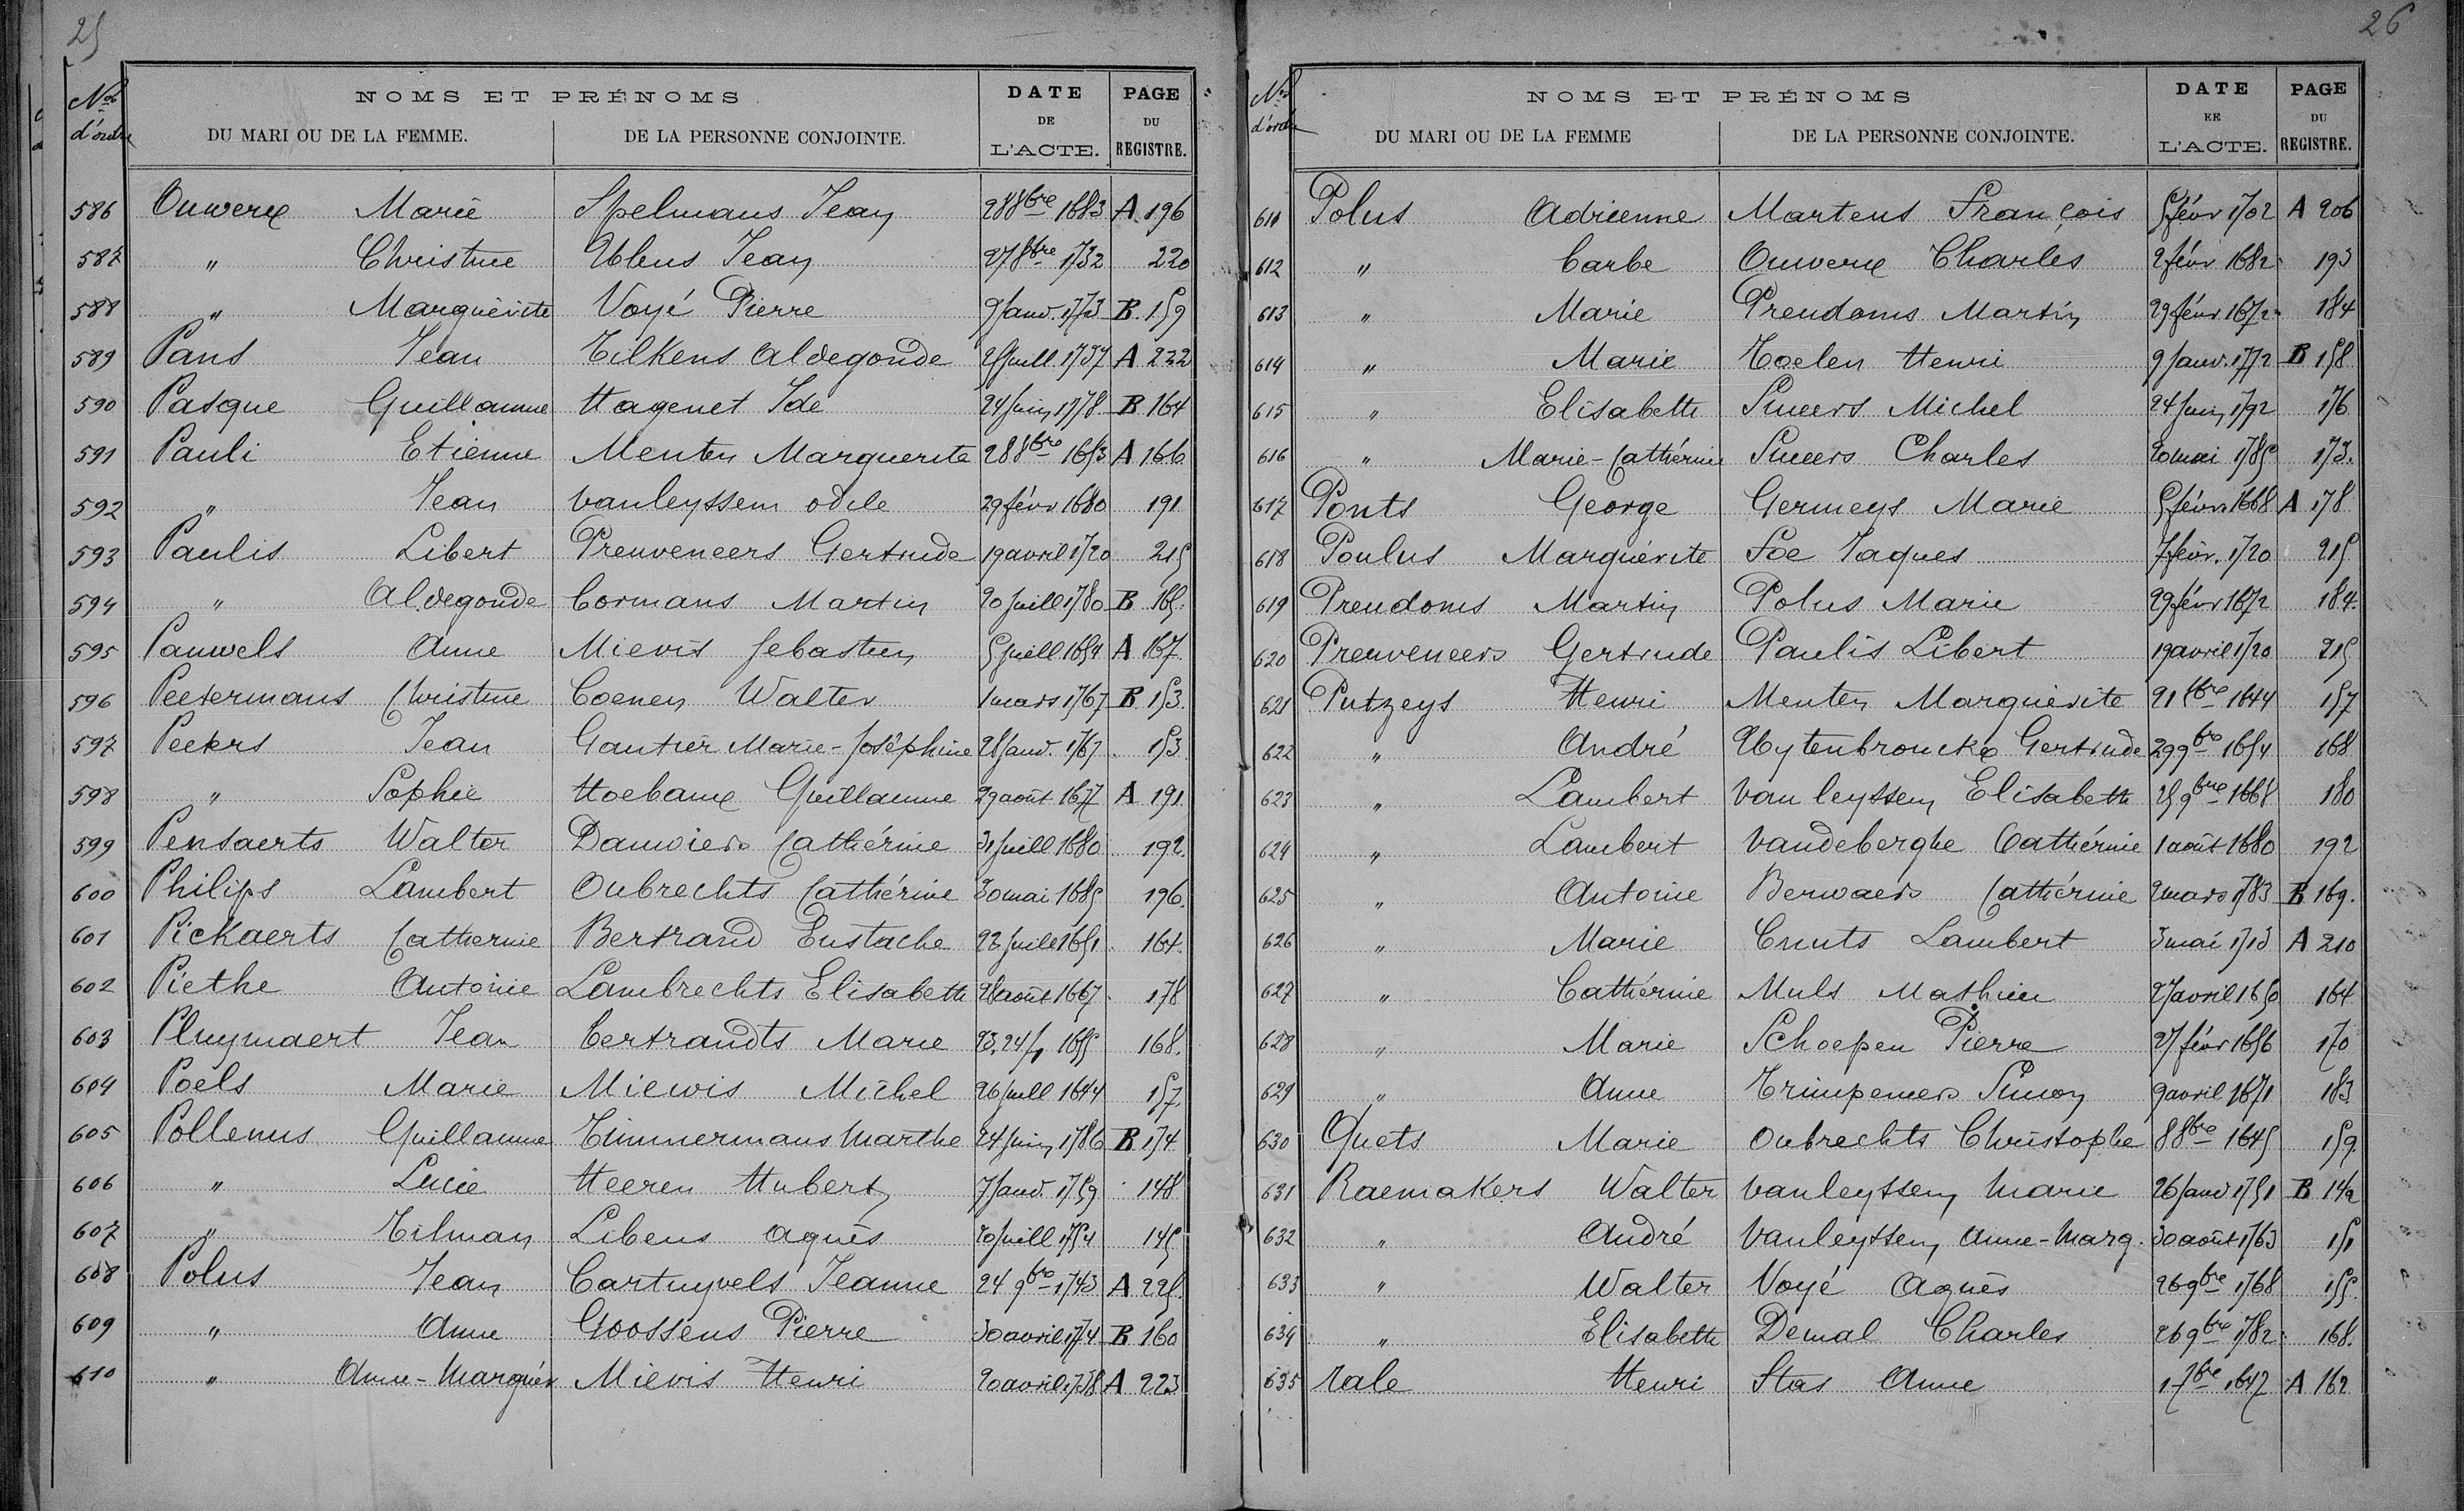 25
Nos d'ordre
NOMS ET PRÉNOMS
DU MARI OU DE LA FEMME. DE LA PERSONNE CONJOINTE.
DATE DE L'ACTE.
PAGE DU REGISTRE.
586 Ouwerx Marie Spelmans Jean 28 8bre 1683 A 196
587 " Christine Ulens Jean 27 8bre 1732 220
588 " Marguérite Voyé Pierre 9 janv. 1773 B. 159
589 Pans Jean Tilkens Aldegonde juill. 1737 A 222
590 Pasque Guillaume Hagenet Ide 24 juin 1778 B 164
591 Pauli Etienne Menten Marguerite 28 8bre 1653 A 166
592 " Jean vanleyssem odile 29 févr 1680 191
593 Paulis Libert Preuveneers Gertrude 19 avril 1720 215
594 " Aldegonde Cormans Martin 20 juill 1780 B 165.
595 Pauwels Anne Mievis Sebastien 5 juill 1654 A 167
596 Peetermans Christine Coenen Walter 1 mars 1767 B 153.
597 Peeters Jean Gautier Marie-Joséphine 28 janv. 1767 153.
598 " Sophie Hoebanx Guillaume 29 août 1677 A 191
599 Pensaerts Walter Dauwiers Cathérine 31 juill 1680 192.
600 Philips Lambert Oubrechts Cathérine 30 mai 1685 196.
601 Pickaerts Catherine Bertrand Eustache 23 juill 1651 164.
602 Piethe Antoine Lambrechts Elisabeth 28 août 1667 178
603 Pluymaert Jean Certrandts Marie 23. 24/1 1655 168.
604 Poels Marie Miewis Michel 26 juill 1644 157.
605 Pollenus Guillaume Timmermans Marthe 24 juin 1786 B 174
606 " Lucie Heeren Hubert 7 janv. 1759 148
607 " Tilman Libens Agnès 20 juill 1754 145
608 Polus Jean Cartuyvels Jeanne 24 9bre 1743 A 225.
609 " Anne Goossens Pierre 30 avril 1774 B 160
610 " Anne-Marguér. Mievis Henri 20 avril 1738 A 223
26
Nos d'ordre
NOMS ET PRÉNOMS
DU MARI OU DE LA FEMME DE LA PERSONNE CONJOINTE.
DATE KE L'ACTE.
PAGE DU REGISTRE.
611 Polus Adrienne Martens François 5 févr 1702 A 206
612 " Barbe Ouwerx Charles 2 févr 1682 193
613 " Marie Preudoms Martin 29 févr. 1672 184
614 " Marie Toelen Henri 9 janv. 1772 B 158
615 " Elisabeth Smeers Michel 24 juin 1792 176
616 " Marie-Cathérine Smeers Charles 20 mai 1785 173.
617 Ponts George Germeys Marie 5 févr 1668 A 178
618 Poulus Marguérite Soe Jaques 7 févr. 1720 215
619 Preudoms Martin Polus Marie 29 févr 1672 184.
620 Preuveneers Gertrude Paulis Libert 19 avril 1720 215
621 Putzeys Henri Menten Marguérite 1644 157
622 " André Uytenbrouckx Gertrude 29 9bre 1654 168
623 " Lambert van leyssem Elisabeth 25 9bre 1668 180
624 " Lambert vandeberghe Cathérine 1 août 1680 192
625 " Antoine Berwaers Cathérine 2 mars 1783 B 169.
626 " Marie Cnuts Lambert 3 mai 1713 A 210
627 " Cathérine Muls Mathieu 27 avril 1650 164
628 " Marie Schoepen Pierre 27 févr 1656 170
629 " Anne Trimpeneers Simon 9 avril 1671 183
630 Quets Marie Oubrechts Christophe 8 8bre 1645 159.
631 Raemakers Walter vanleyssem Marie 26 janv 1751 B 142
632 " André Vanleyssem Anne-Marg. 30 août 1763 151
633 " Walter Voyé Agnès 26 9bre 1768 155.
634 " Elisabeth Demal Charles 26 9bre 1782 168.
635 rale Henri Stas Anne 1 7bre 1647 A 162